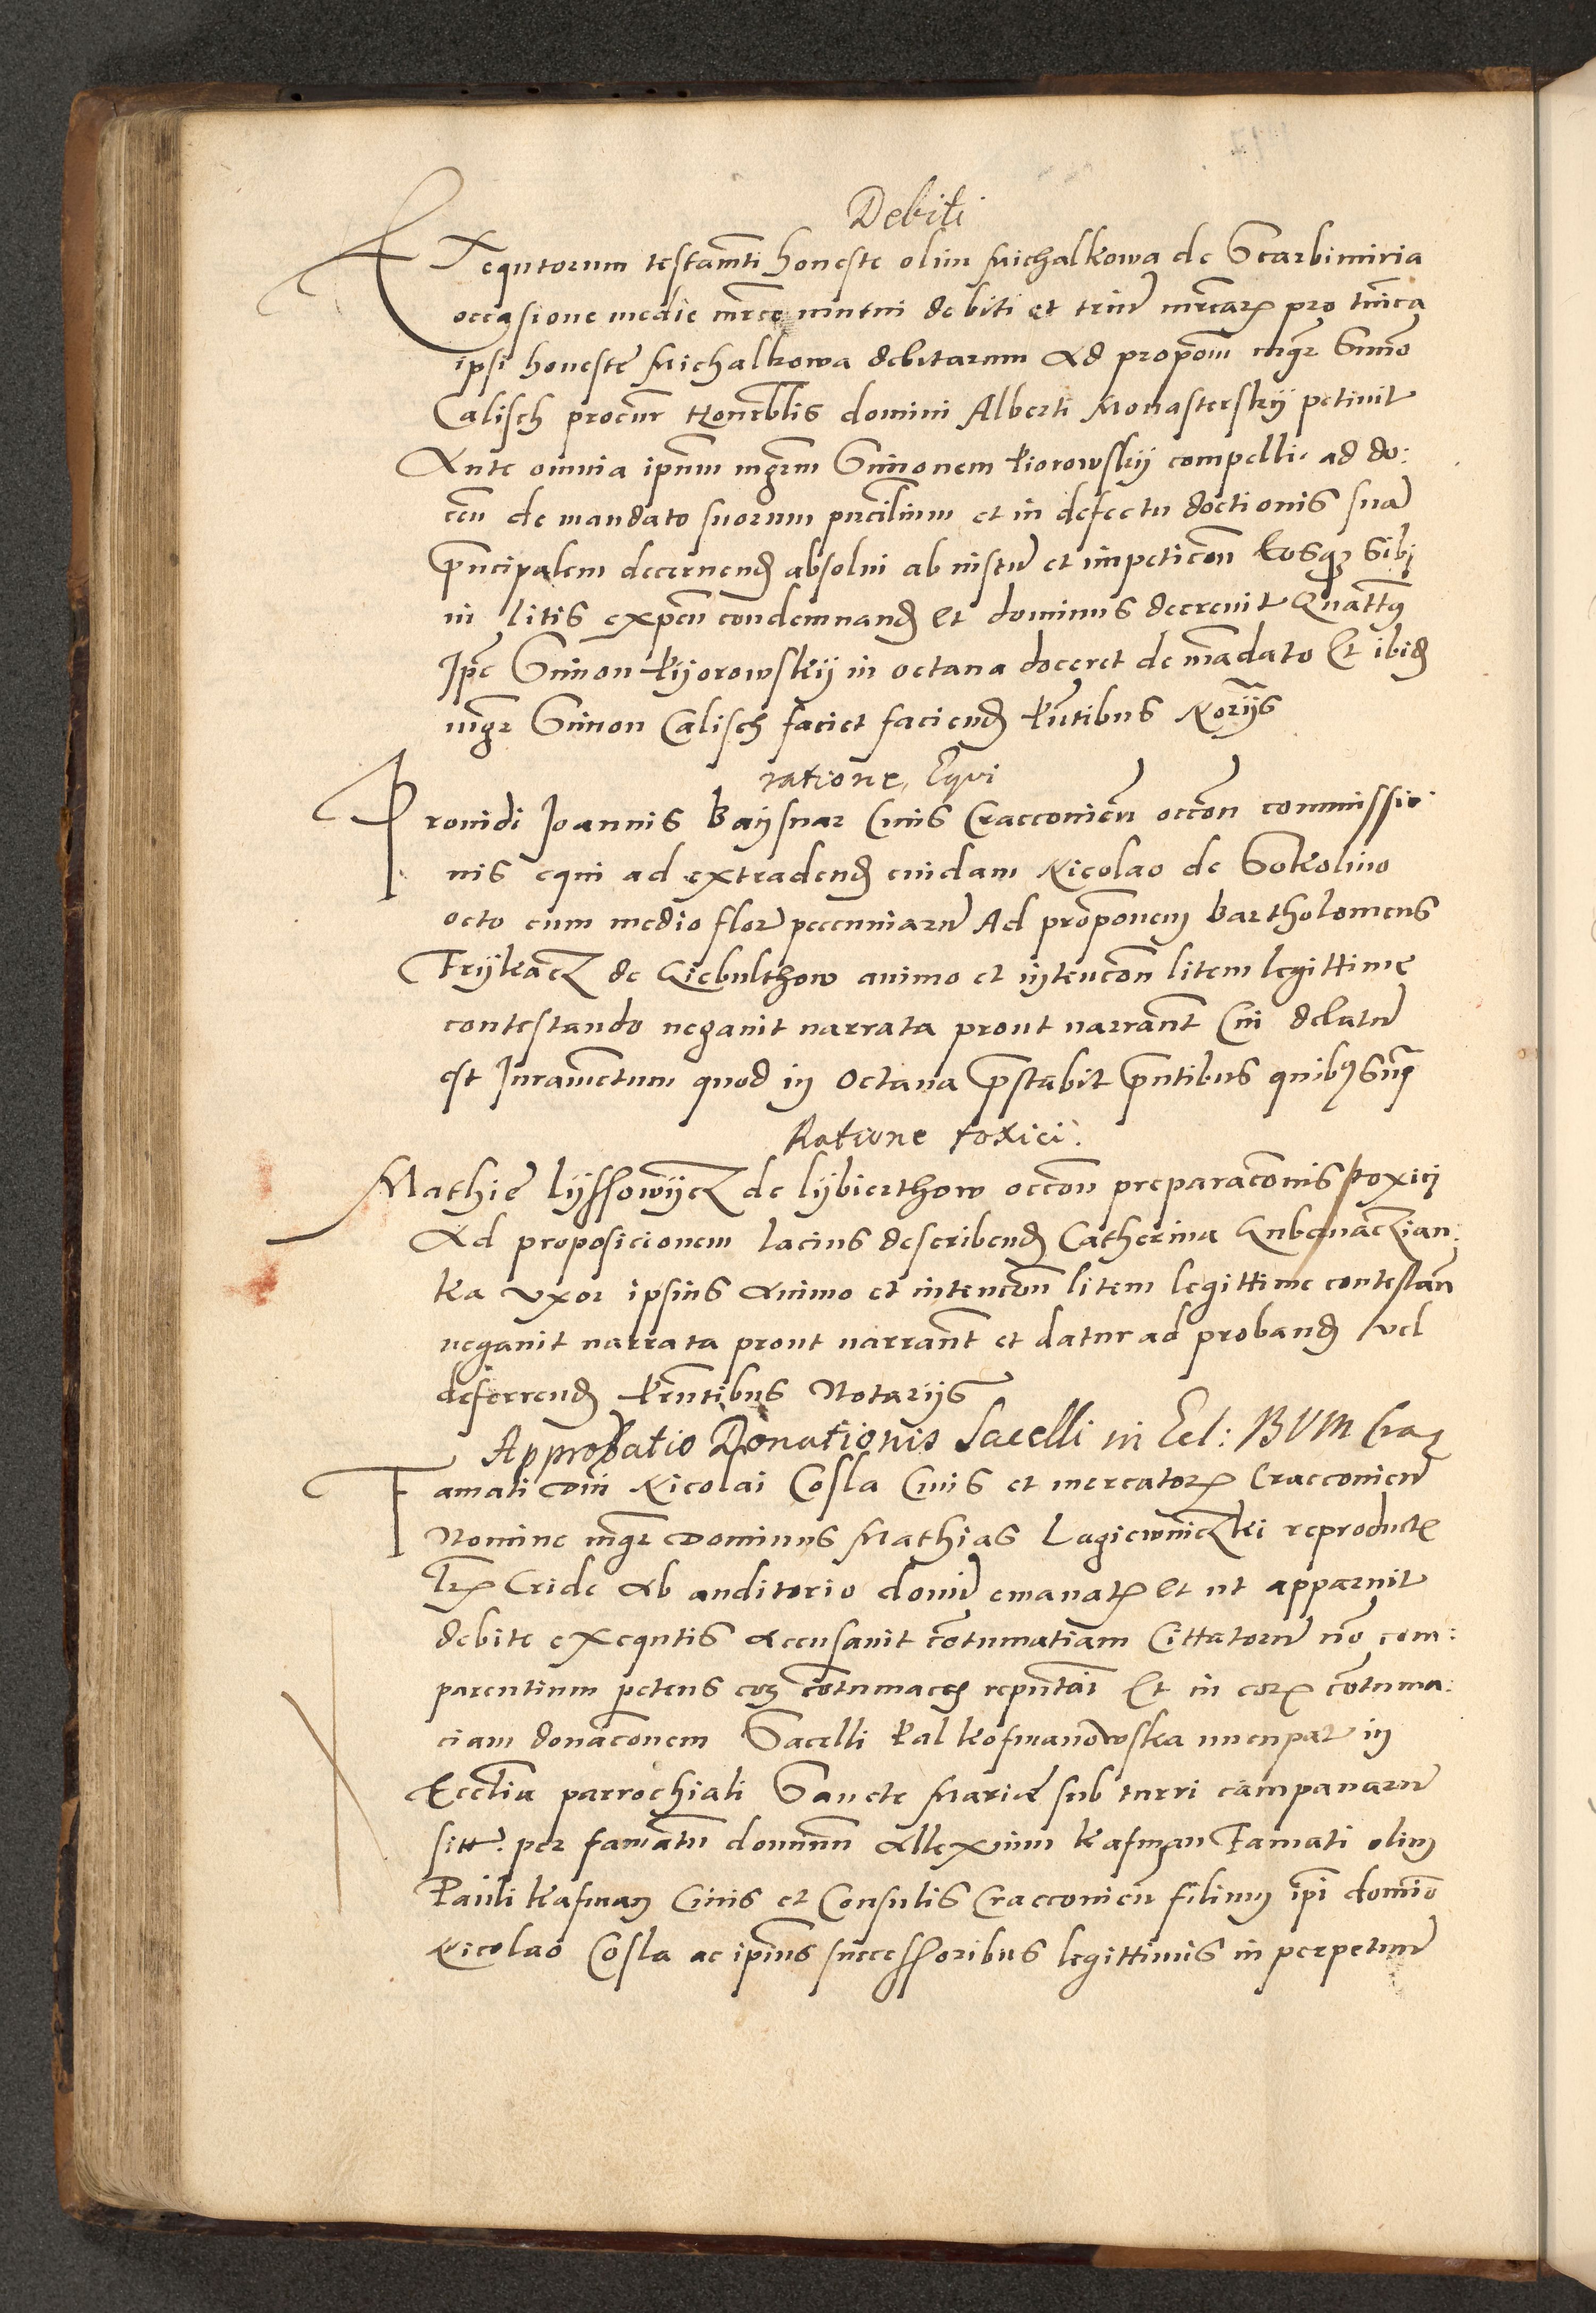 Debiti
Exequtorum testamti honeste olim Michalkowa de Scarbimiria
occasione medie mrce mutui debiti et trium mrcarz pro tunica
ipsi honeste Michalkowa debitarum Ad propom mgr Simo
Calisch procur Honrblis domini Alberti Monasterskij petiuit
Ante omnia ipsum mgrm Simonem Kiorowskij compelli ad do:
cen de mandato suorum pncilium et in defectu doctionis sua
principalem decernend absolui ab instn et impeticon eosqz sibi
in litis expen condemnand Et dominus decreuit Quattus
Ipse Simon Kijorowskij in octaua doceret de mandato Et ibid
mgr Simon Calisch faciet faciend Pntibus Norijs
ratione Equi
Prouidi Joannis Baijsnar Ciuis Craccouien occon commissio
nis equi ad extradend cuidam Nicolao de Sokolino
octo cum medio flor pecuniarum Ad proponem Bartholomeus
Frijkacz de Giebulthow animo et intencon litem legittime
contestando negauit narrata prout narrant Cui delatum
est Juramentum quod in Octaua prestabit pntibus quibus supra
Ratione toxici.
Mathie Lijssowijcz de Lijbierthow occon preparaconis toxici
Ad proposicionem lacius describend Catherina
ka vxor ipsius animo et intencon litem legittime contestan
negauit narrata prout narrant et datur ad proband vel
deferrend Pntibus Notarijs
Approbatio Donationis Sacelli in Eccl: BVM Crac
Famati dni Nicolai Cosla Ciuis et mercatorz Craccouien
Nomine mgr Dominus Mathias Lagiewniczki reproductz
Lrz Cride Ab auditorio domin emanatz Et ut apparuit
debite exequtis Accusauit cotumatiam Cittatorum no com:
parentium petens eos cotumaces reputari Et in eorz cotuma:
ciam donaconem Sacelli Kalkofmanowska nuncpat in
Ecclia parrochiali Sancte Marie sub turri campanarum
sitt. per famatum dominum Allexium Kafman Famati olim
Pauli Kafman Ciuis et Consulis Craccouien filium ipi domino
Nicolao Cosla ac ipsius successoribus legittimis in perpetuum